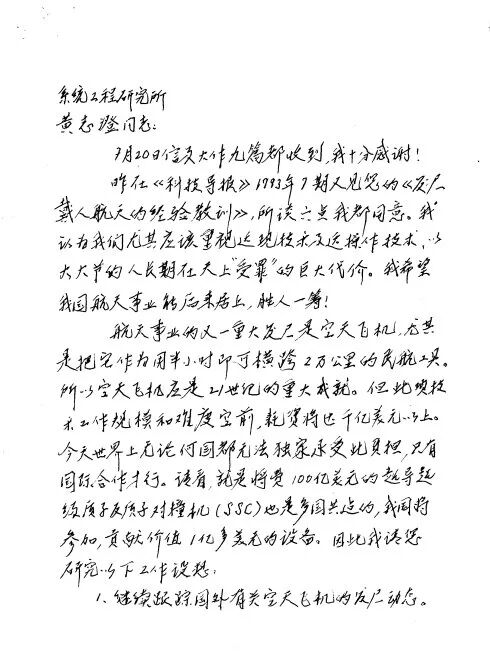 系统工程研究所
黄志澄同志：
7月20日信及大作九篇都收到，我十分感谢！
昨在《科技导报》1993年7期又见您的《发展
载人航天的经验教训》，所谈六点我都同意。我
认为我们尤其应该重视遥现技术及遥操作技术，以
大大节约人长期在天上“受罪”的巨大代价。我希望
我国航天事业能后来居上，胜人一筹！
航天事业的又一重大发展是空天飞机，尤其
是把它作为用半小时即可横跨2万公里的民航工具。
所以空天飞机应是21世纪的重大成就。但此项技
术工作规模和难度空前，耗资将达千亿美元以上。
今天世界上无论何国都无法独家承受此负担，只有
国际合作才行。请看，就是将费100亿美元的超导超
级质子反质子对撞机（SSC）也是多国共建的，我国将
参加，贡献价值1亿多美元的设备。因此我请您
研究以下工作设想：
1、继续跟踪国外有关空天飞机的发展动态。